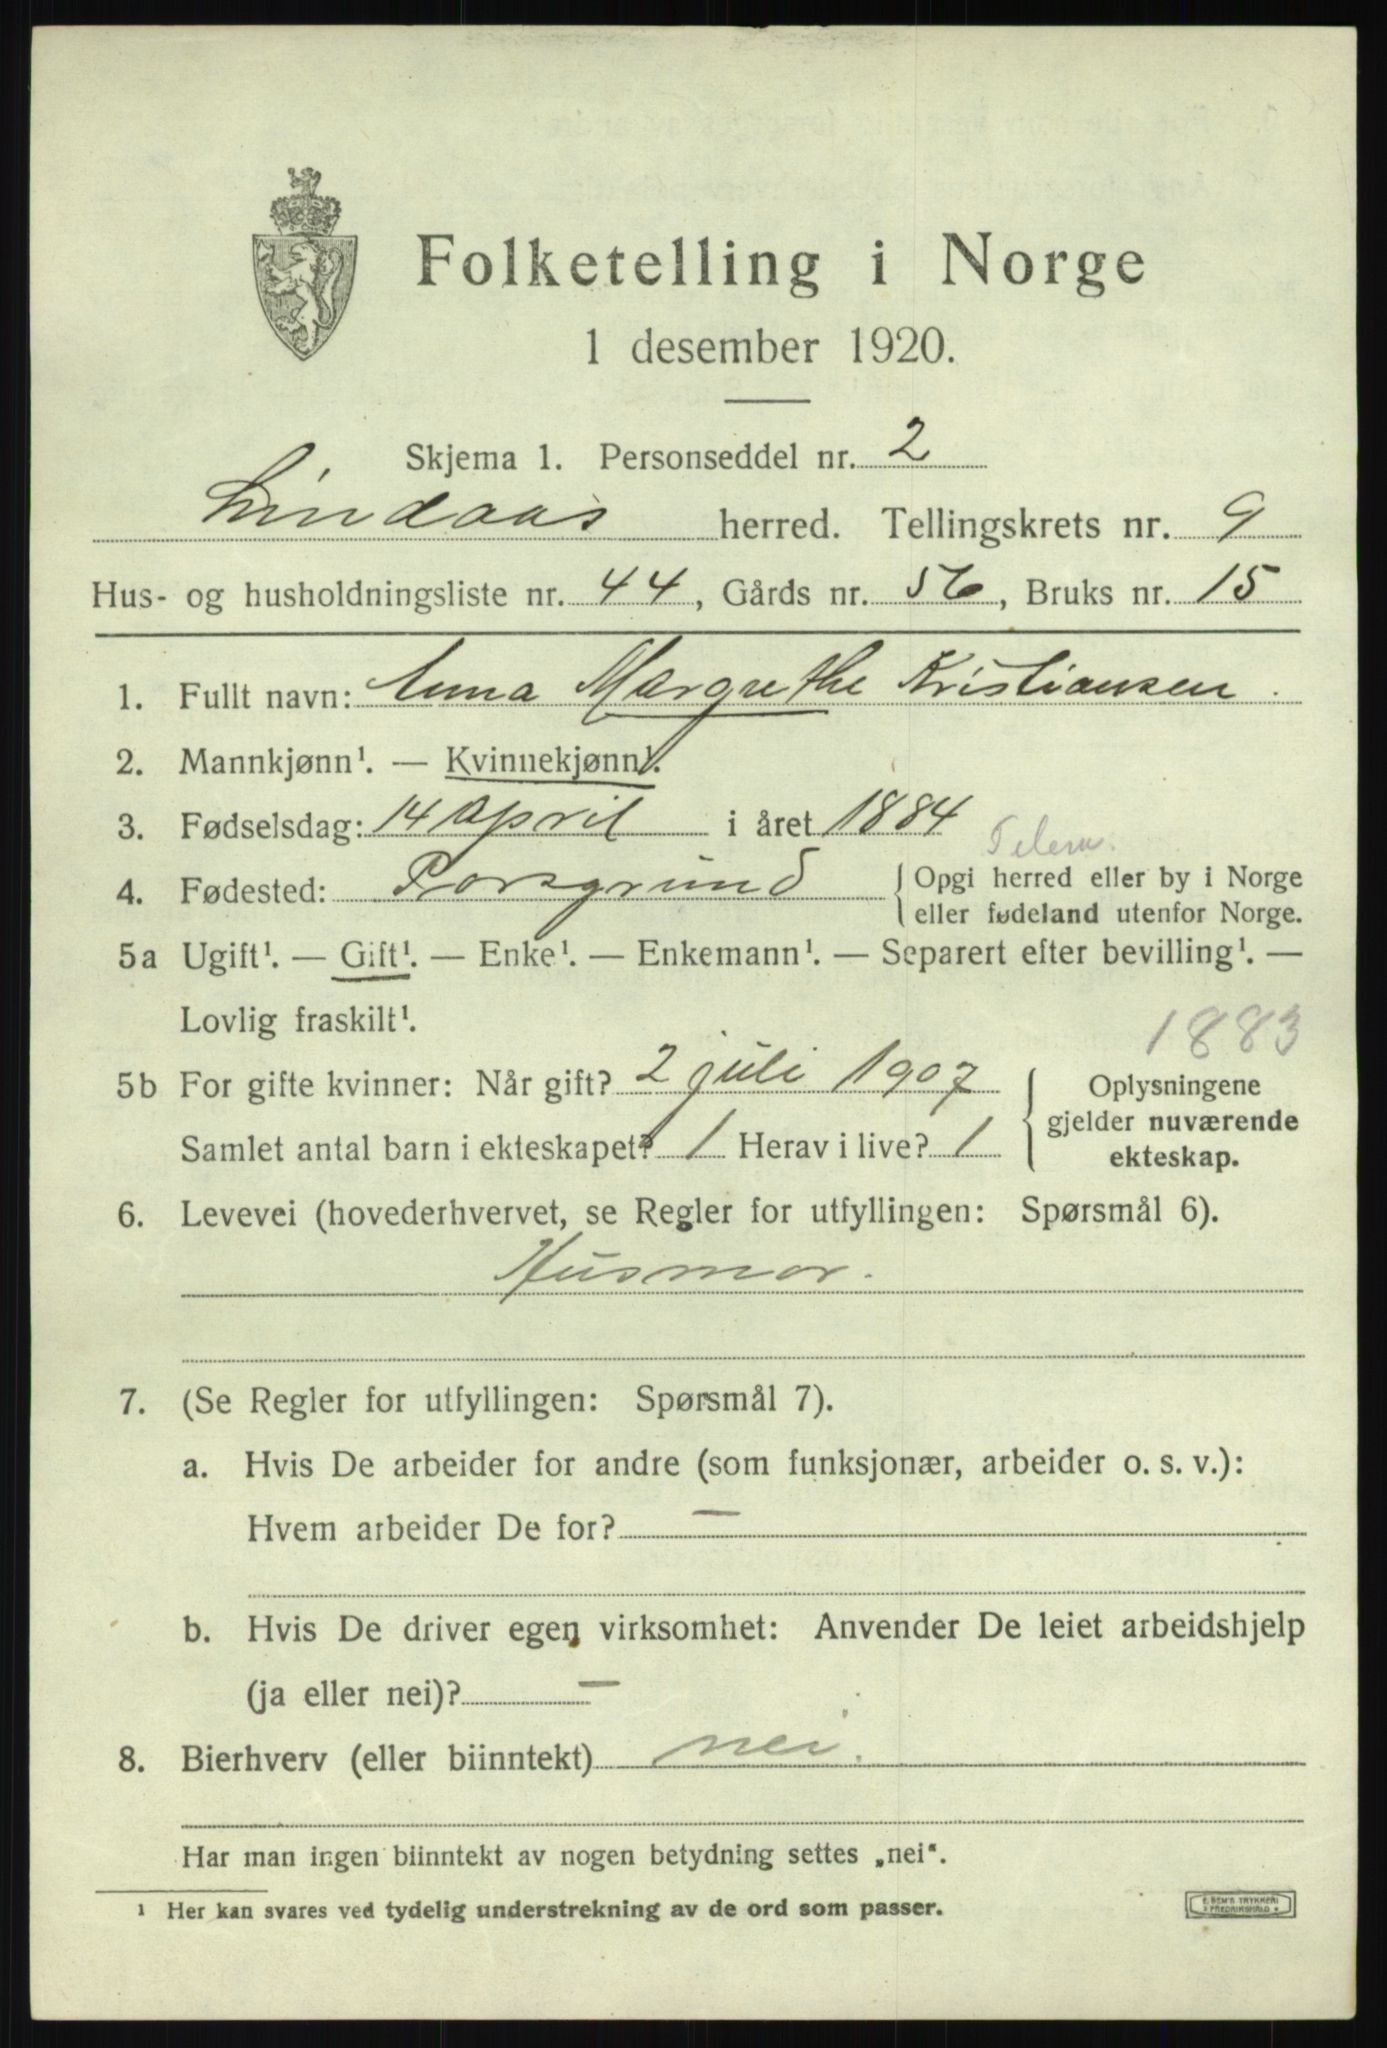 Folketelling i Norge
1 desember 1920.
Skjema 1. Personseddel nr. 2
Lindaas herred. Tellingskrets nr. 9
Hus- og husholdningsliste nr. 44, Gårds nr. 56, Bruks nr. 15
1. Fullt navn: Anna Margrethe Kristiansen.
2. Mannkjønn¹. — Kvinnekjønn¹.
3. Fødselsdag: 14 april i året 1884
Telem.
4. Fødested: Porsgrund { Opgi herred eller by i Norge
eller fødeland utenfor Norge.
5a Ugift¹. — Gift¹. — Enke¹. — Enkemann¹. — Separert efter bevilling¹. —
Lovlig fraskilt¹.
1883
5b For gifte kvinner: Når gift? 2 juli 1907 { Oplysningene
gjelder nuværende
Samlet antal barn i ekteskapet? 1 Herav i live? 1 ekteskap.
6. Levevei (hovederhvervet, se Regler for utfyllingen: Spørsmål 6).
Husmor.
7. (Se Regler for utfyllingen: Spørsmål 7).
a. Hvis De arbeider for andre (som funksjonær, arbeider o. s. v.):
Hvem arbeider De for? —
b. Hvis De driver egen virksomhet: Anvender De leiet arbeidshjelp
(ja eller nei)? —
8. Bierhverv (eller biinntekt) nei.
Har man ingen biinntekt av nogen betydning settes „nei“.
¹ Her kan svares ved tydelig understrekning av de ord som passer.
E. SEM'S TRYKKERI
FREDRIKSHALD